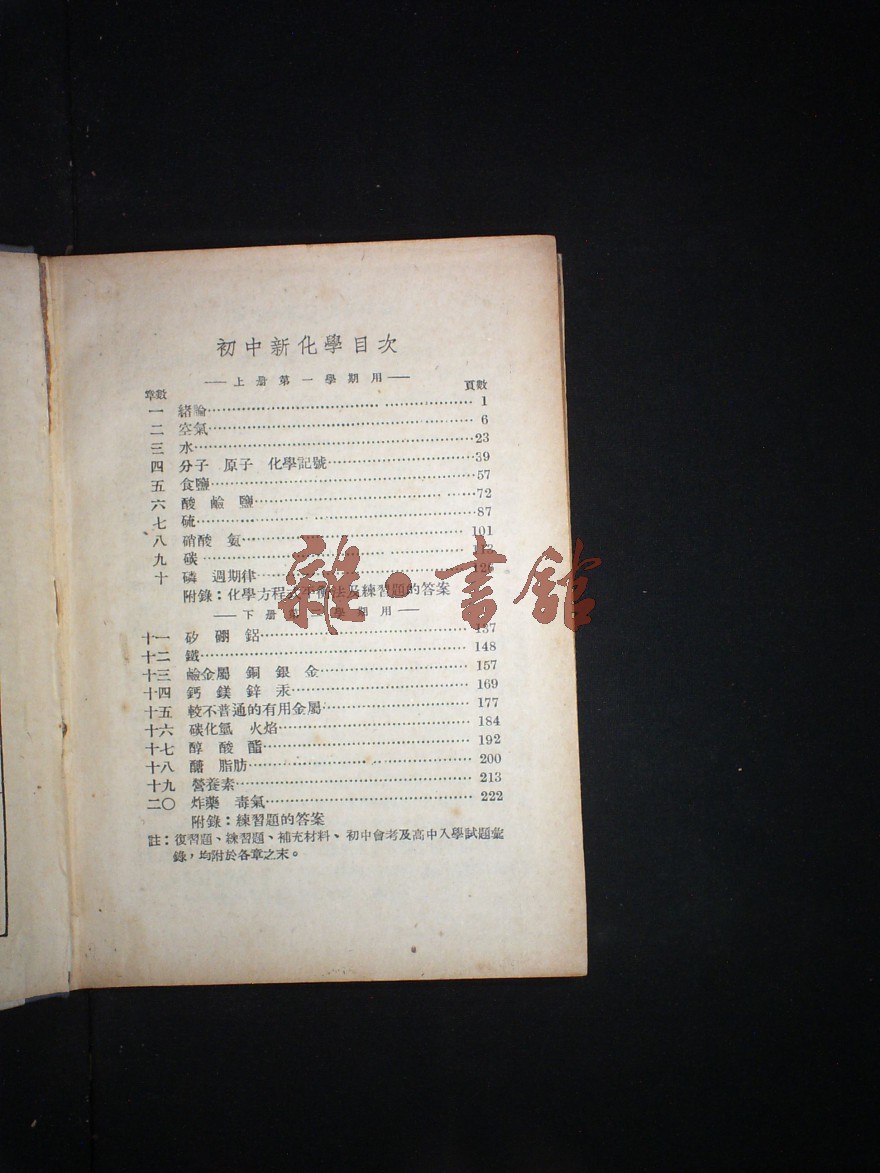 初中新化學目次
——上册第一學期用——
章數 頁數
一 緒論 1
二 空氣 6
三 水 23
四 分子 原子 化學記號 39
五 食鹽 57
六 酸 鹼 鹽 72
七 硫 87
八 硝酸 氨 101
九 碳
十 磷 週期律
附錄：化學方程式平衡法及練習題的答案
——下册第二學期用——
十一 矽 硼 鋁 137
十二 鐵 148
十三 鹼金屬 銅 銀 金 157
十四 鈣 鎂 鋅 汞 169
十五 較不普通的有用金屬 177
十六 碳化氫 火焰 184
十七 醇 酸 酯 192
十八 醣 脂肪 200
十九 營養素 213
二〇 炸藥 毒氣 222
附錄：練習題的答案
註：復習題、練習題、補充材料、初中會考及高中入學試題彙
錄，均附於各章之末。
雜·書館